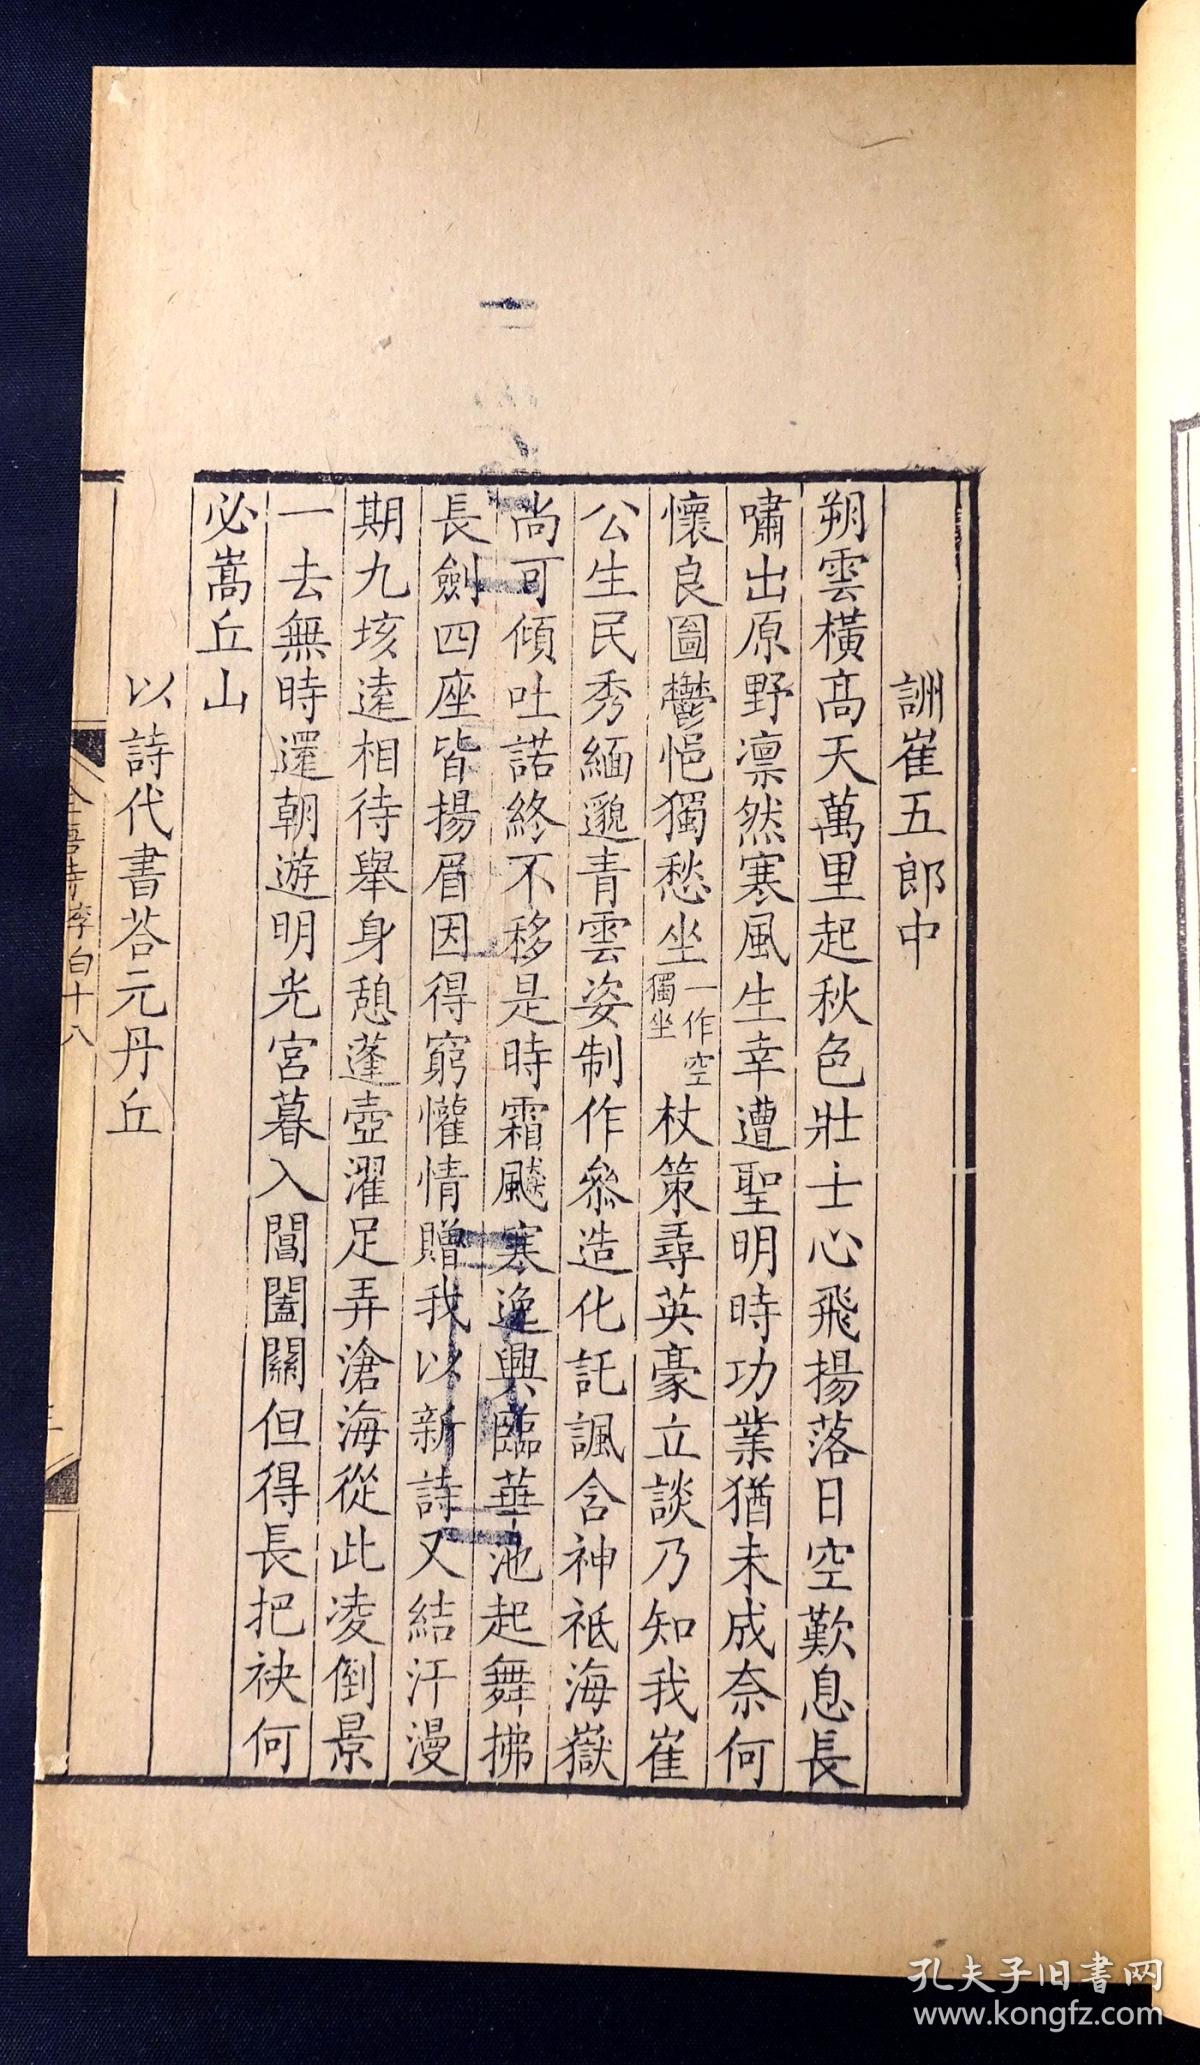 詶崔五郎中
朔雲橫高天萬里起秋色壯士心飛揚落日空歎息長
嘯出原野凛然寒風生幸遭聖明時功業猶未成奈何
懷良圖鬱悒獨愁坐一作空獨坐杖策尋英豪立談乃知我崔
公生民秀緬邈青雲姿制作參造化託諷含神祇海嶽
尚可傾吐諾終不移是時霜飈寒逸興臨華池起舞拂
長劍四座皆揚眉因得窮懽情贈我以新詩又結汗漫
期九垓遠相待舉身憩蓬壺濯足弄滄海從此凌倒景
一去無時還朝遊明光宮暮入閶闔關但得長把袂何
必嵩丘山
以詩代書荅元丹丘
全唐詩李白十八
孔夫子旧書网
www.kongfz.com